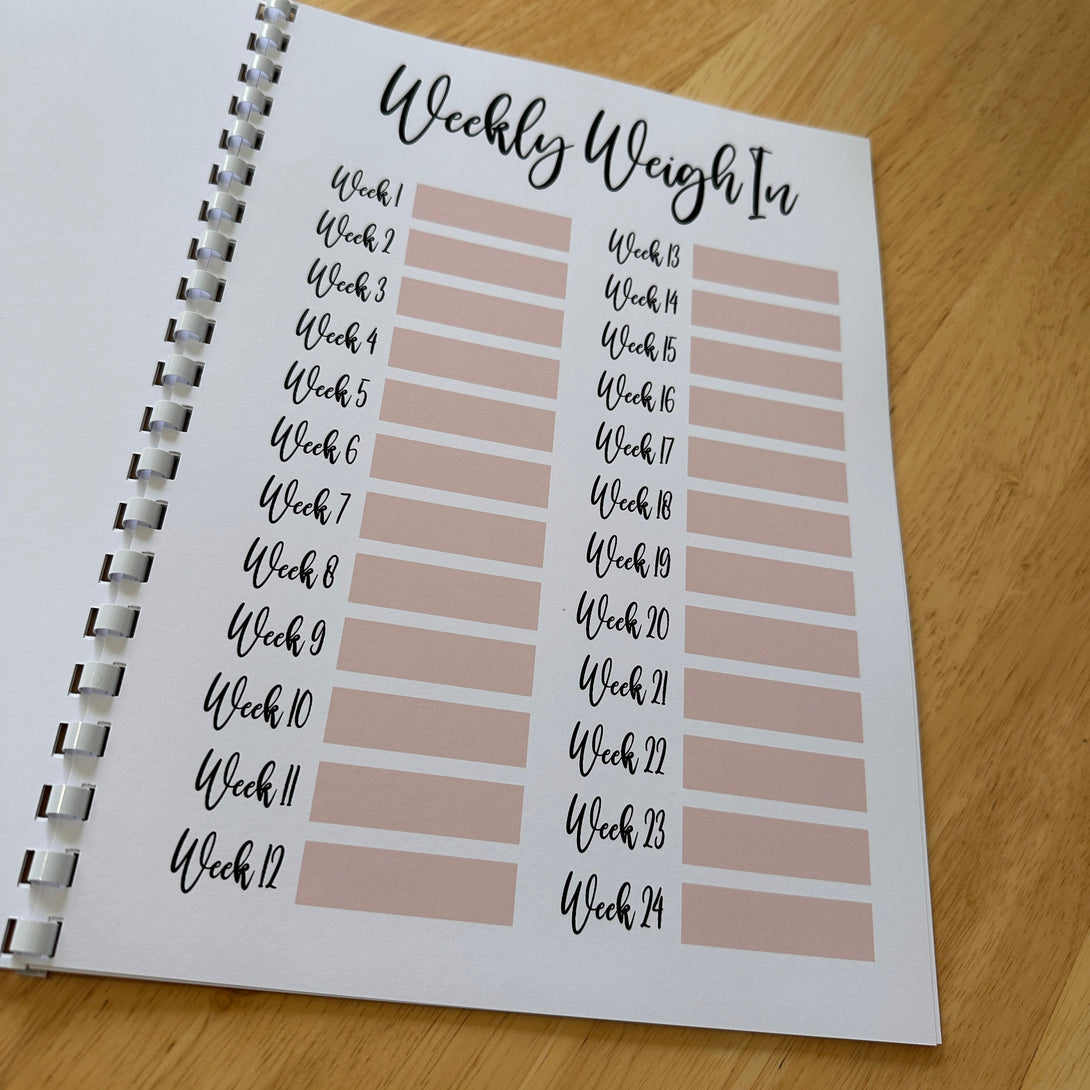 Weekly Weigh In
Week 1
Week 2
Week 3
Week 4
Week 5
Week 6
Week 7
Week 8
Week 9
Week 10
Week 11
Week 12
Week 13
Week 14
Week 15
Week 16
Week 17
Week 18
Week 19
Week 20
Week 21
Week 22
Week 23
Week 24